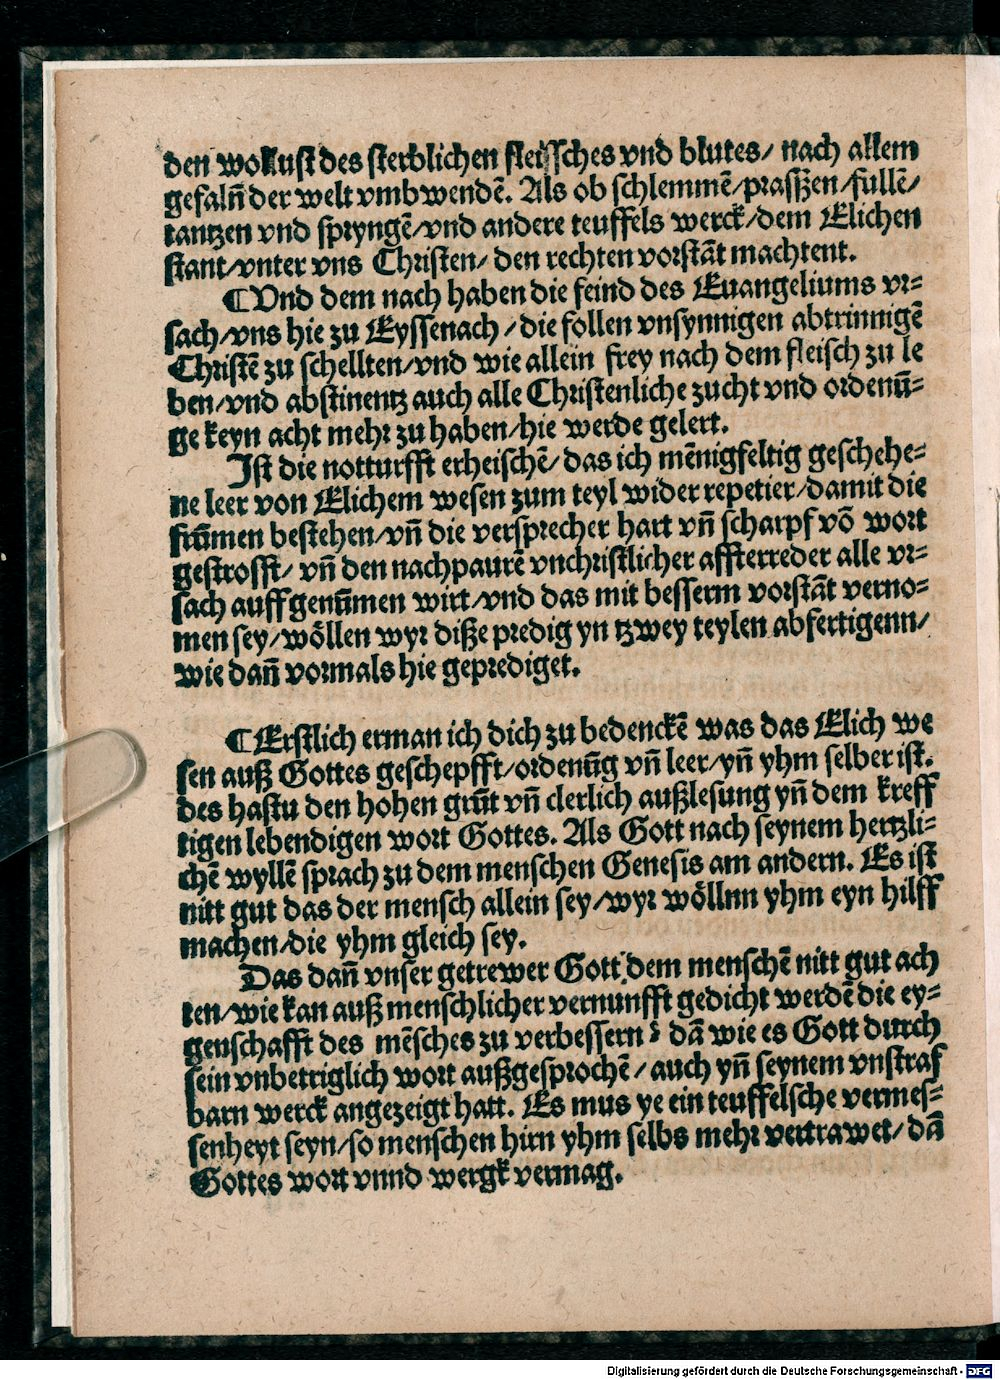 den wollust des sterblichen fleisches vnd blutes/ nach allem
gefaln̄ der welt vmbwendē. Als ob schlemmē/prasszen/fullē/
tantzen vnd spryngē/vnd andere teuffels werck/dem Elichen
stant/vnter vns Christen/ den rechten vorstāt machtent.
¶ Vnd dem nach haben die feind des Euangeliums vr⸗
sach/vns hie zu Eyssenach/die follen vnsynnigen abtrinnigē
Christē zu schellten/vnd wie allein frey nach dem fleisch zu le
ben/vnd abstinentz auch alle Christenliche zucht vnd ordenū⸗
ge keyn acht mehr zu haben/hie werde gelert.
Ist die notturfft erheischē/das ich mēnigfeltig geschehe⸗
ne leer von Elichem wesen zum teyl wider repetier/damit die
frūmen bestehen/vn̄ die versprecher hart vn̄ scharpf vō wort
gestrofft/ vn̄ den nachpaurē vnchristlicher affterreder alle vr⸗
sach auffgenūmen wirt/vnd das mit besserm vorstāt verno⸗
men sey/wöllen wyr diße predig yn tzwey teylen abfertigenn/
wie dan̄ vormals hie geprediget.
¶ Erstlich erman ich dich zu bedenckē was das Elich we
sen auß Gottes geschepfft/ordenūg vn̄ leer/yn̄ yhm selber ist.
des hastu den hohen grūt vn̄ clerlich außlesung yn̄ dem kreff
tigen lebendigen wort Gottes. Als Gott nach seynem hertzli⸗
chē wyllē sprach zu dem menschen Genesis am andern. Es ist
nitt gut das der mensch allein sey/wyr wöllnn yhm eyn hilff
machen/die yhm gleich sey.
Das dan̄ vnser getrewer Gott dem menschē nitt gut ach
ten/wie kan auß menschlicher vernunfft gedicht werdē die ey⸗
genschafft des mēsches zu verbessern? dā wie es Gott durch
sein vnbetriglich wort außgesprochē/ auch yn̄ seynem vnstraf
barn werck angezeigt hatt. Es mus ye ein teuffelsche vermes⸗
senheyt seyn/so menschen hirn yhm selbs mehr vertrawet/dā
Gottes wort vnnd wergk vermag.
Digitalisierung gefördert durch die Deutsche Forschungsgemeinschaft - DFG